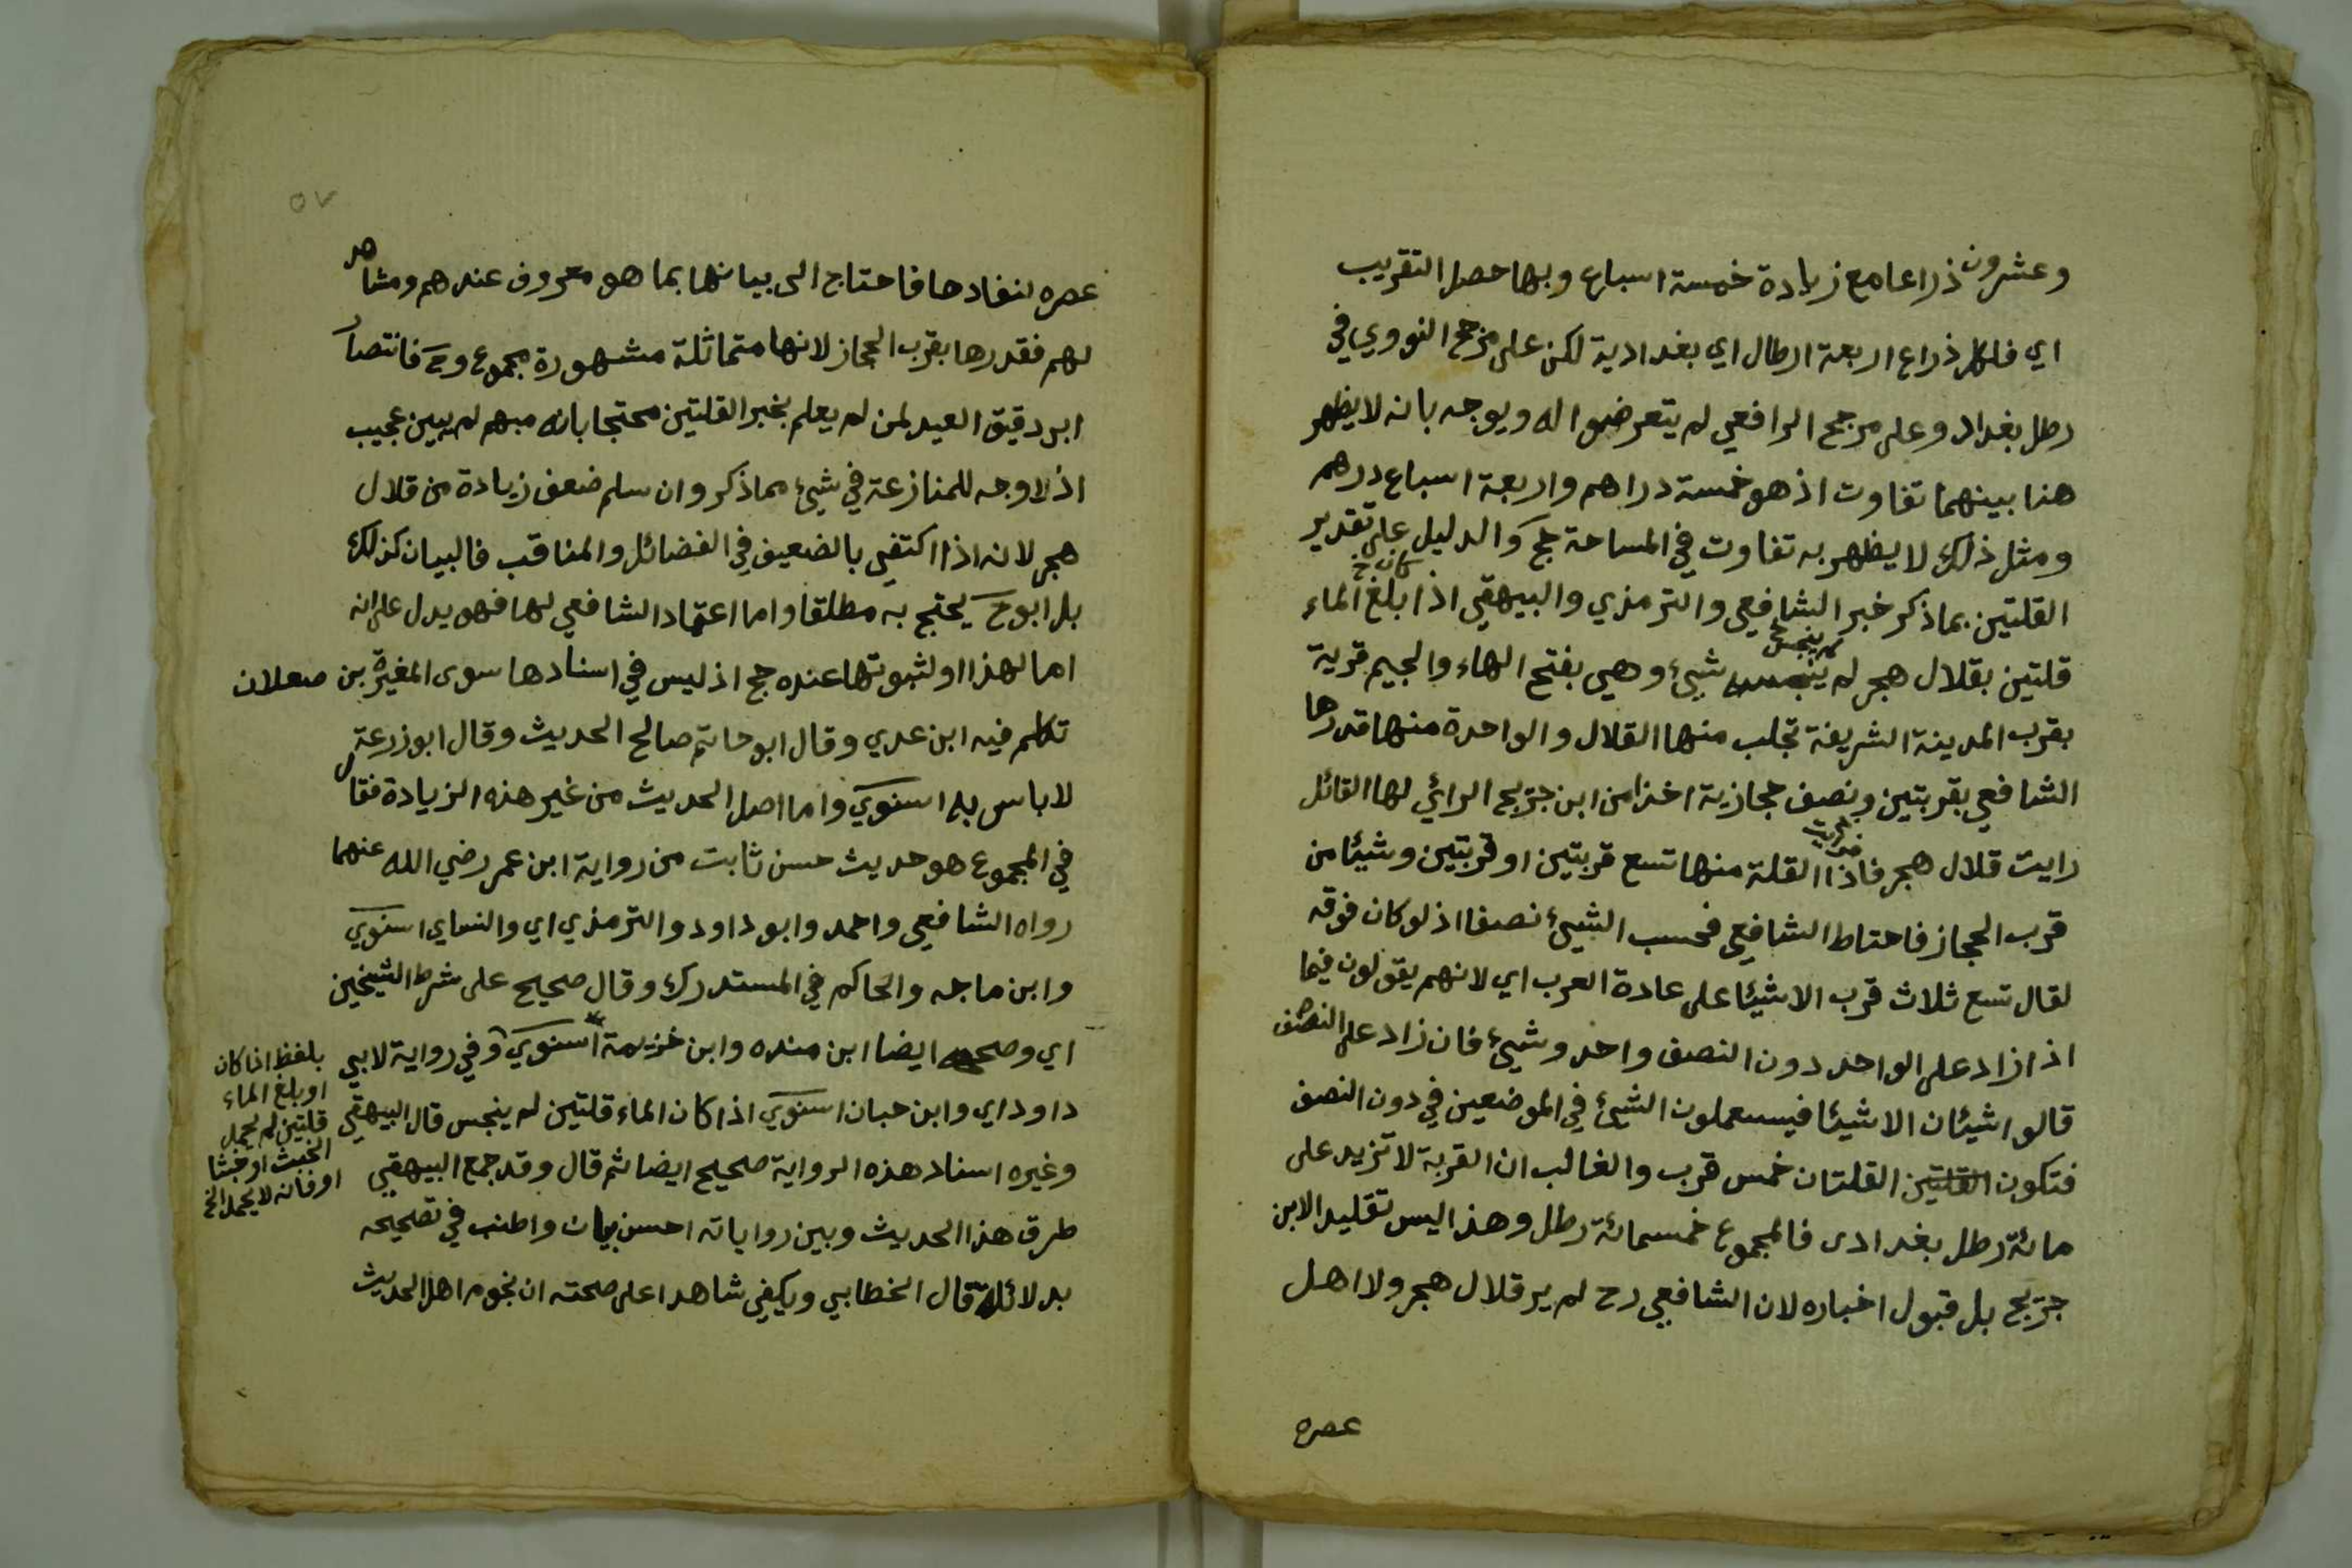 وعشرون ذراعا مع زيادة خمسة اسباع وبها حصل التقريب
اي فلكل ذراع اربعة ارطال اي بغدادية لكن على مرجح النووي في
رطل بغداد وعلى مرجح الرافعي لم يتعرضوا له ويوجه بانه لا يظهر
هنا بينهما تفاوت اذ هو خمسة دراهم واربعة اسباع درهم
ومثل ذلك لا يظهر به تفاوت في المساحة حج والدليل على تقدير
القلتين بما ذكر خبر الشافعي والترمذي والبيهقي اذا بلغ الماء
كان خ
قلتين بقلال هجر لم ينجس شيئ وهي بفتح الهاء والجيم قرية
لم ينجس خ
بقرب المدينة الشريفة تجلب منها القلال والواحدة منها قدرها
الشافعي بقربتين ونصف حجازية اخذا من ابن جريج الرائي لها القائل
رايت قلال هجر فاذا القلة منها تسع قربتين او قربتين وشيئا من
قرب الحجاز فاحتاط الشافعي فحسب الشيئ نصفا اذ لو كان فوقه
لقال تسع ثلاث قرب الا شيئا على عادة العرب اي لانهم يقولون فيما
اذا زاد على الواحد دون النصف واحد وشيئ فان زاد على النصف
قالوا شيئان الا شيئا فيستعملون الشيئ في الموضعين في دون النصف
فتكون القلتين القلتان خمس قرب والغالب ان القربة لا تزيد على
مائة رطل بغدادى فالمجموع خمسمائة رطل وهذا ليس تقليد الابن
جريج بل قبول اخباره لان الشافعي رح لم ير قلال هجر ولا اهل
عصره
٥٧
عصره لنفادها فاحتاج الى بيانها بما هو معروف عندهم ومشاهد
لهم فقدرها بقرب الحجاز لانها متماثلة مشهورة مجموع وح فانتصار
ابن دقيق العيد لمن لم يعلم بخبر القلتين محتجا بانه مبهم لم يبين عجيب
اذ لا وجه للمنازعة في شيئ مما ذكر وان سلم ضعف زيادة من قلال
هجر لانه اذا اكتفي بالضعيف في الفضائل والمناقب فالبيان كذلك
بل ابو ح يحتج به مطلقا واما اعتماد الشافعي لها فهو يدل على انه
اما لهذا او لثبوتها عنده حج اذ ليس في اسنادها سوى المغيرة بن صعلان
تكلم فيه ابن عدي وقال ابو حاتم صالح الحديث وقال ابو زرعة
لا باس به اسنوي واما اصل الحديث من غير هذه الزيادة فقال
في المجموع هو حديث حسن ثابت من رواية ابن عمر رضي الله عنهما
رواه الشافعي واحمد وابو داود والترمذي اي والنساي اسنوي
وابن ماجه والحاكم في المستدرك وقال صحيح على شرط الشيخين
اي وصححه ايضا ابن منده وابن خزيمة اسنوي وفي رواية لابي
داود اي وابن حبان اسنوي اذا كان الماء قلتين لم ينجس قال البيهقي
وغيره اسناد هذه الرواية صحيح ايضا ثم قال وقد جمع البيهقي
طرق هذا الحديث وبين رواياته احسن بيان واطنب في تصحيحه
بدلائله قال الخطابي ويكفي شاهدا على صحته ان نجوم اهل الحديث
بلفظ اذا كان
او بلغ الماء
قلتين لم يحمل
الخبث او خبثا
او فانه لا يحمل الخ